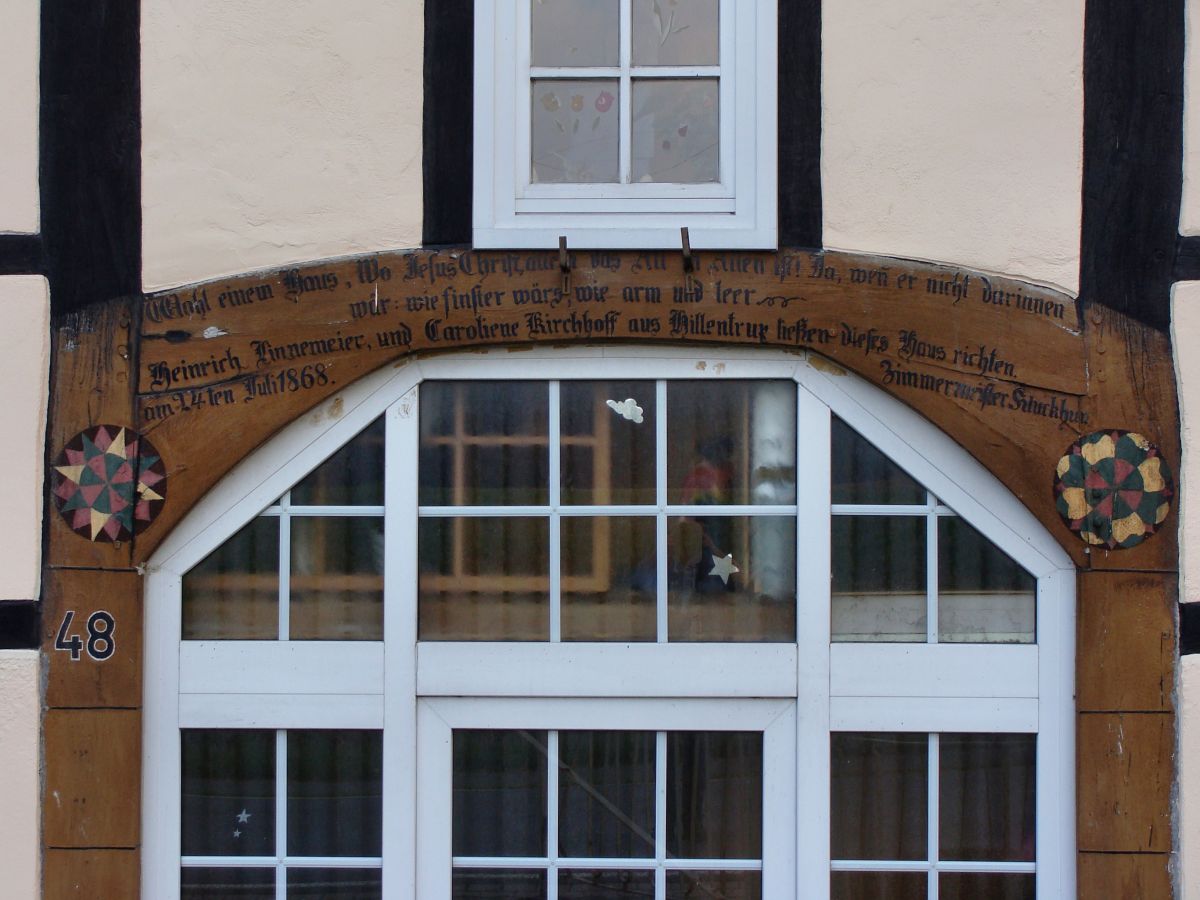 Wohl einem Haus, Wo Jesus Christ, das All Allen ist! Ja, weñ er nicht darinnen
wär: wie finster wärs, wie arm und leer
Heinrich Linnemeier, und Caroliene Kirchhoff aus Hillentrup ließen dieses Haus richten.
am 24ten Juli 1868. Zimmermeister
48